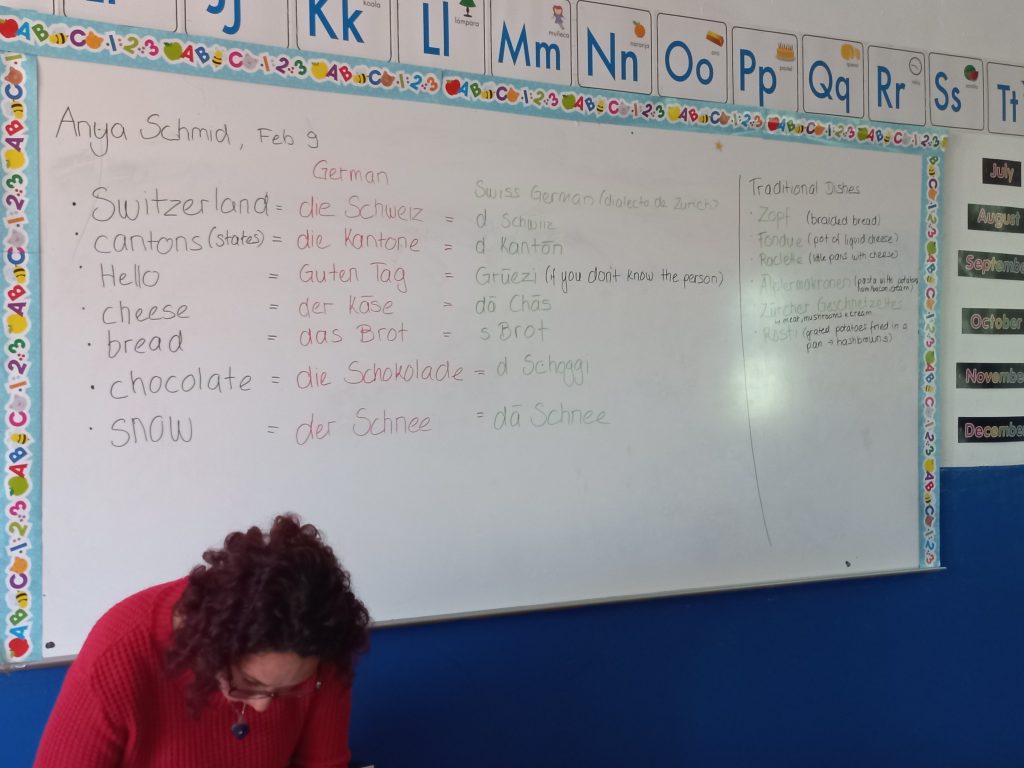 Kk
koala
Ll
lámpara
Mm
muñeca
Nn
naranja
Oo
Pp
pastel
Qq
queso
Rr
Ss
Tt
Anya Schmid, Feb 9
German
Swiss German (dialecto de Zürich)
• Switzerland = die Schweiz = d Schwiiz
• cantons (states) = die Kantone = d Kantön
• Hello = Guten Tag = Grüezi (if you don't know the person)
• cheese = der Käse = dä Chäs
• bread = das Brot = s Brot
• chocolate = die Schokolade = d Schoggi
• snow = der Schnee = dä Schnee
Traditional Dishes
• Zopf (braided bread)
• Fondue (pot of liquid cheese)
• Raclette (little pans with cheese)
• Älplermakronen (pasta with potatoes, ham/bacon, cream)
• Zürcher Geschnetzeltes
↳ meat, mushrooms & cream
• Rösti (grated potatoes fried in a
pan → hashbrowns)
July
August
September
October
November
December